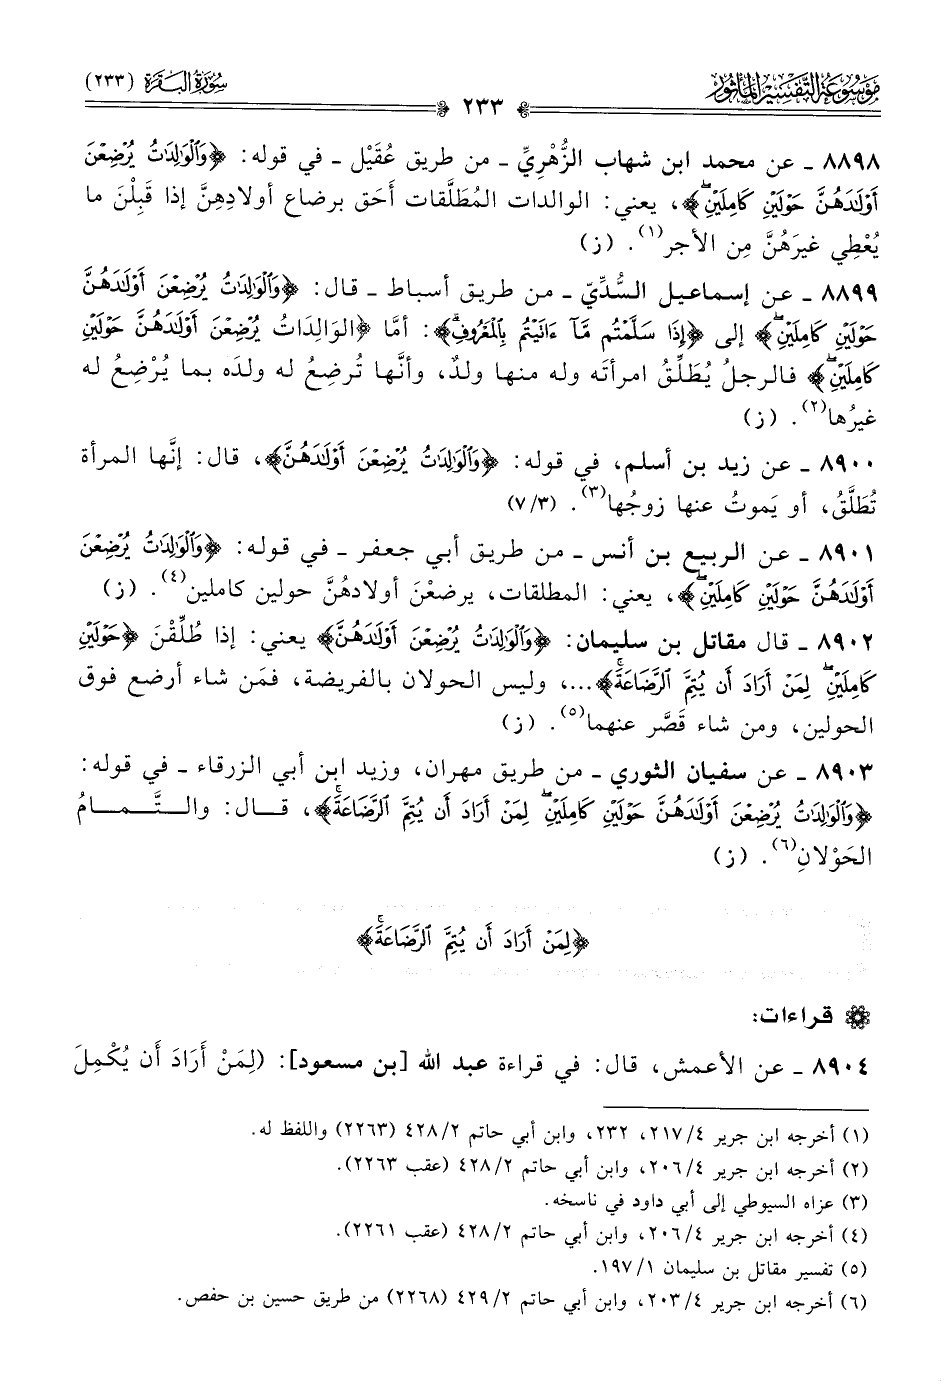 مَوْسُوعَة التَّفْسِير المَأْثُور
سُورَةُ البَقَرَة (٢٣٣)
٢٣٣
٨٨٩٨ ـ عن محمد ابن شهاب الزُّهْرِيِّ ـ من طريق عُقَيْل ـ في قوله: ﴿وَٱلْوَٰلِدَٰتُ يُرْضِعْنَ
أَوْلَٰدَهُنَّ حَوْلَيْنِ كَامِلَيْنِۖ﴾، يعني: الوالدات المُطَلَّقات أَحَق برضاع أولادِهِنَّ إذا قَبِلْنَ ما
يُعْطِي غيرَهُنَّ مِن الأجر(١). (ز)
٨٨٩٩ ـ عن إسماعيل السُّدِّيِّ ـ من طريق أسباط ـ قال: ﴿وَٱلْوَٰلِدَٰتُ يُرْضِعْنَ أَوْلَٰدَهُنَّ
حَوْلَيْنِ كَامِلَيْنِۖ﴾ إلى ﴿إِذَا سَلَّمْتُم مَّآ ءَاتَيْتُم بِٱلْمَعْرُوفِۗ﴾: أمَّا ﴿الوَالِدَاتُ يُرْضِعْنَ أَوْلَٰدَهُنَّ حَوْلَيْنِ
كَامِلَيْنِۖ﴾ فالرجلُ يُطَلِّقُ امرأته وله منها ولدٌ، وأنَّها تُرضِعُ له ولده بما يُرْضِعُ له
غيرُها(٢). (ز)
٨٩٠٠ ـ عن زيد بن أسلم، في قوله: ﴿وَٱلْوَٰلِدَٰتُ يُرْضِعْنَ أَوْلَٰدَهُنَّ﴾، قال: إنَّها المرأة
تُطَلَّقُ، أو يَموتُ عنها زوجُها(٣). (٧/٣)
٨٩٠١ ـ عن الربيع بن أنس ـ من طريق أبي جعفر ـ في قوله: ﴿وَٱلْوَٰلِدَٰتُ يُرْضِعْنَ
أَوْلَٰدَهُنَّ حَوْلَيْنِ كَامِلَيْنِۖ﴾، يعني: المطلقات، يرضعْنَ أولادهُنَّ حولين كاملين(٤). (ز)
٨٩٠٢ ـ قال مقاتل بن سليمان: ﴿وَٱلْوَٰلِدَٰتُ يُرْضِعْنَ أَوْلَٰدَهُنَّ﴾ يعني: إذا طُلِّقْنَ ﴿حَوْلَيْنِ
كَامِلَيْنِۖ لِمَنْ أَرَادَ أَن يُتِمَّ ٱلرَّضَاعَةَۚ﴾...، وليس الحولان بالفريضة، فمَن شاء أرضع فوق
الحولين، ومن شاء قَصَّر عنهما(٥). (ز)
٨٩٠٣ ـ عن سفيان الثوري ـ من طريق مهران، وزيد ابن أبي الزرقاء ـ في قوله:
﴿وَٱلْوَٰلِدَٰتُ يُرْضِعْنَ أَوْلَٰدَهُنَّ حَوْلَيْنِ كَامِلَيْنِۖ لِمَنْ أَرَادَ أَن يُتِمَّ ٱلرَّضَاعَةَۚ﴾، قـال: والـتَّـمـامُ
الحَوْلانِ(٦). (ز)
﴿لِمَنْ أَرَادَ أَن يُتِمَّ ٱلرَّضَاعَةَۚ﴾
قراءات:
٨٩٠٤ ـ عن الأعمش، قال: في قراءة عبد الله [بن مسعود]: (لِمَنْ أَرَادَ أَن يُكْمِلَ
(١) أخرجه ابن جرير ٢١٧/٤، ٢٣٢، وابن أبي حاتم ٤٢٨/٢ (٢٢٦٣) واللفظ له.
(٢) أخرجه ابن جرير ٢٠٦/٤، وابن أبي حاتم ٤٢٨/٢ (عقب ٢٢٦٣).
(٣) عزاه السيوطي إلى أبي داود في ناسخه.
(٤) أخرجه ابن جرير ٢٠٦/٤، وابن أبي حاتم ٤٢٨/٢ (عقب ٢٢٦١).
(٥) تفسير مقاتل بن سليمان ١٩٧/١.
(٦) أخرجه ابن جرير ٢٠٣/٤، وابن أبي حاتم ٤٢٩/٢ (٢٢٦٨) من طريق حسين بن حفص.